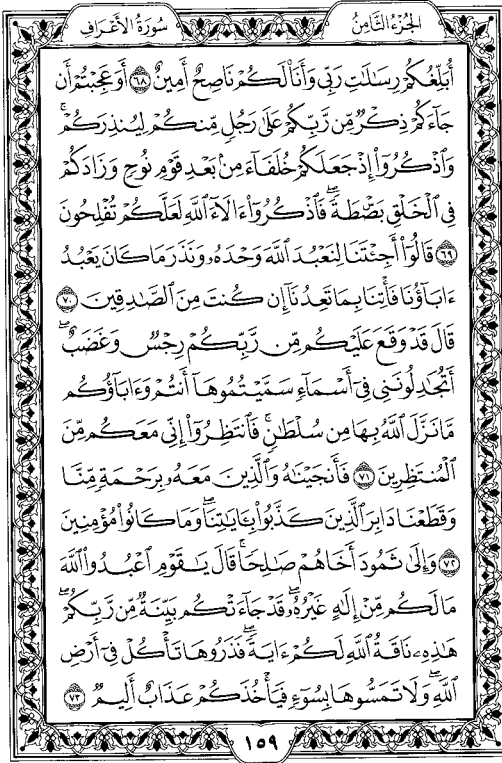 الجزء الثامن
سورة الأعراف
أُبَلِّغُكُمْ رِسَالَاتِ رَبِّي وَأَنَا۠ لَكُمْ نَاصِحٌ أَمِينٌ ٦٨ أَوَعَجِبْتُمْ أَن
جَآءَكُمْ ذِكْرٌ مِّن رَّبِّكُمْ عَلَىٰ رَجُلٍ مِّنكُمْ لِيُنذِرَكُمْ ۚ
وَٱذْكُرُوٓا۟ إِذْ جَعَلَكُمْ خُلَفَآءَ مِنۢ بَعْدِ قَوْمِ نُوحٍ وَزَادَكُمْ
فِى ٱلْخَلْقِ بَصْۜطَةً ۖ فَٱذْكُرُوٓا۟ ءَالَآءَ ٱللَّهِ لَعَلَّكُمْ تُفْلِحُونَ
٦٩ قَالُوٓا۟ أَجِئْتَنَا لِنَعْبُدَ ٱللَّهَ وَحْدَهُۥ وَنَذَرَ مَا كَانَ يَعْبُدُ
ءَابَآؤُنَا فَأْتِنَا بِمَا تَعِدُنَآ إِن كُنتَ مِنَ ٱلصَّـٰدِقِينَ ٧٠
قَالَ قَدْ وَقَعَ عَلَيْكُم مِّن رَّبِّكُمْ رِجْسٌ وَغَضَبٌ ۖ
أَتُجَـٰدِلُونَنِى فِىٓ أَسْمَآءٍ سَمَّيْتُمُوهَآ أَنتُمْ وَءَابَآؤُكُم
مَّا نَزَّلَ ٱللَّهُ بِهَا مِن سُلْطَـٰنٍ ۚ فَٱنتَظِرُوٓا۟ إِنِّى مَعَكُم مِّنَ
ٱلْمُنتَظِرِينَ ٧١ فَأَنجَيْنَـٰهُ وَٱلَّذِينَ مَعَهُۥ بِرَحْمَةٍ مِّنَّا
وَقَطَعْنَا دَابِرَ ٱلَّذِينَ كَذَّبُوا۟ بِـَٔايَـٰتِنَا ۖ وَمَا كَانُوا۟ مُؤْمِنِينَ
٧٢ وَإِلَىٰ ثَمُودَ أَخَاهُمْ صَـٰلِحًا ۗ قَالَ يَـٰقَوْمِ ٱعْبُدُوا۟ ٱللَّهَ
مَا لَكُم مِّنْ إِلَـٰهٍ غَيْرُهُۥ ۖ قَدْ جَآءَتْكُم بَيِّنَةٌ مِّن رَّبِّكُمْ ۖ
هَـٰذِهِۦ نَاقَةُ ٱللَّهِ لَكُمْ ءَايَةً ۖ فَذَرُوهَا تَأْكُلْ فِىٓ أَرْضِ
ٱللَّهِ ۖ وَلَا تَمَسُّوهَا بِسُوٓءٍ فَيَأْخُذَكُمْ عَذَابٌ أَلِيمٌ ٧٣
١٥٩